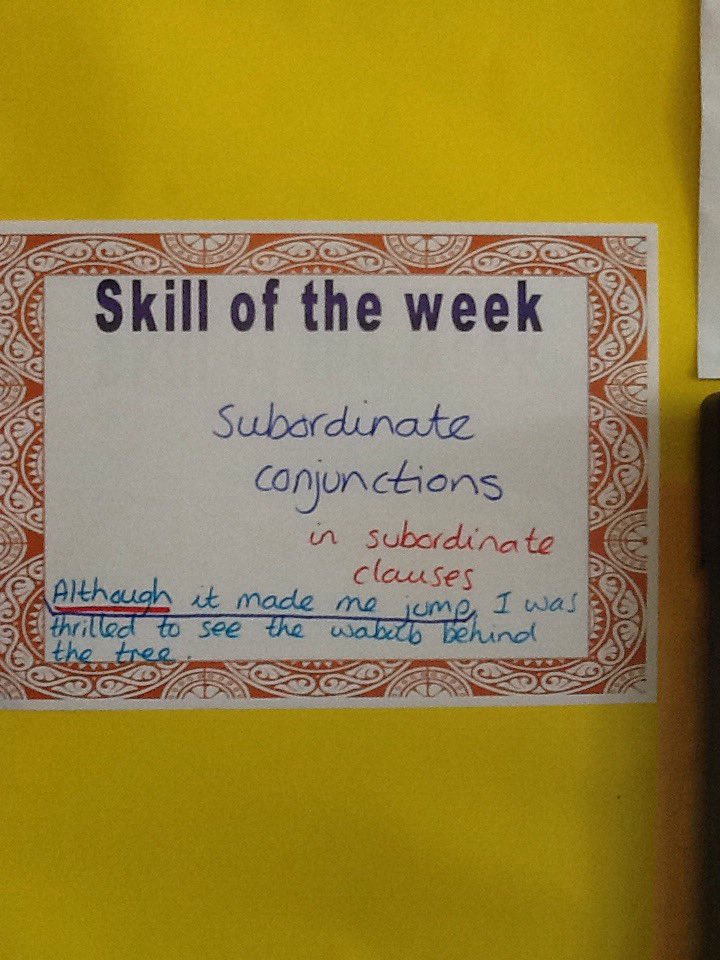 Skill of the week
Subordinate
conjunctions
in subordinate
clauses
Although it made me jump, I was
thrilled to see the behind
the tree.